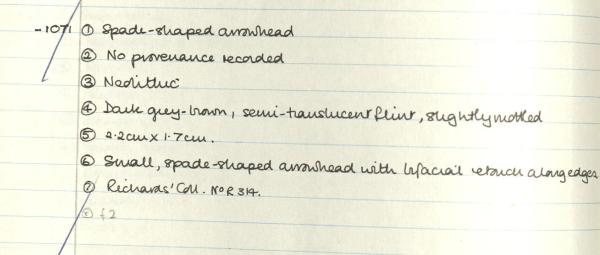 -1071 ① Spade-shaped arrowhead
② No provenance recorded
③ Neolithic
④ Dark grey-brown, semi-translucent flint, slightly mottled
⑤ 2.2cm x 1.7cm.
⑥ Small, spade-shaped arrowhead with bifacial retouch along edges
⑦ Richards' Coll. No R 314.
⑧ £2